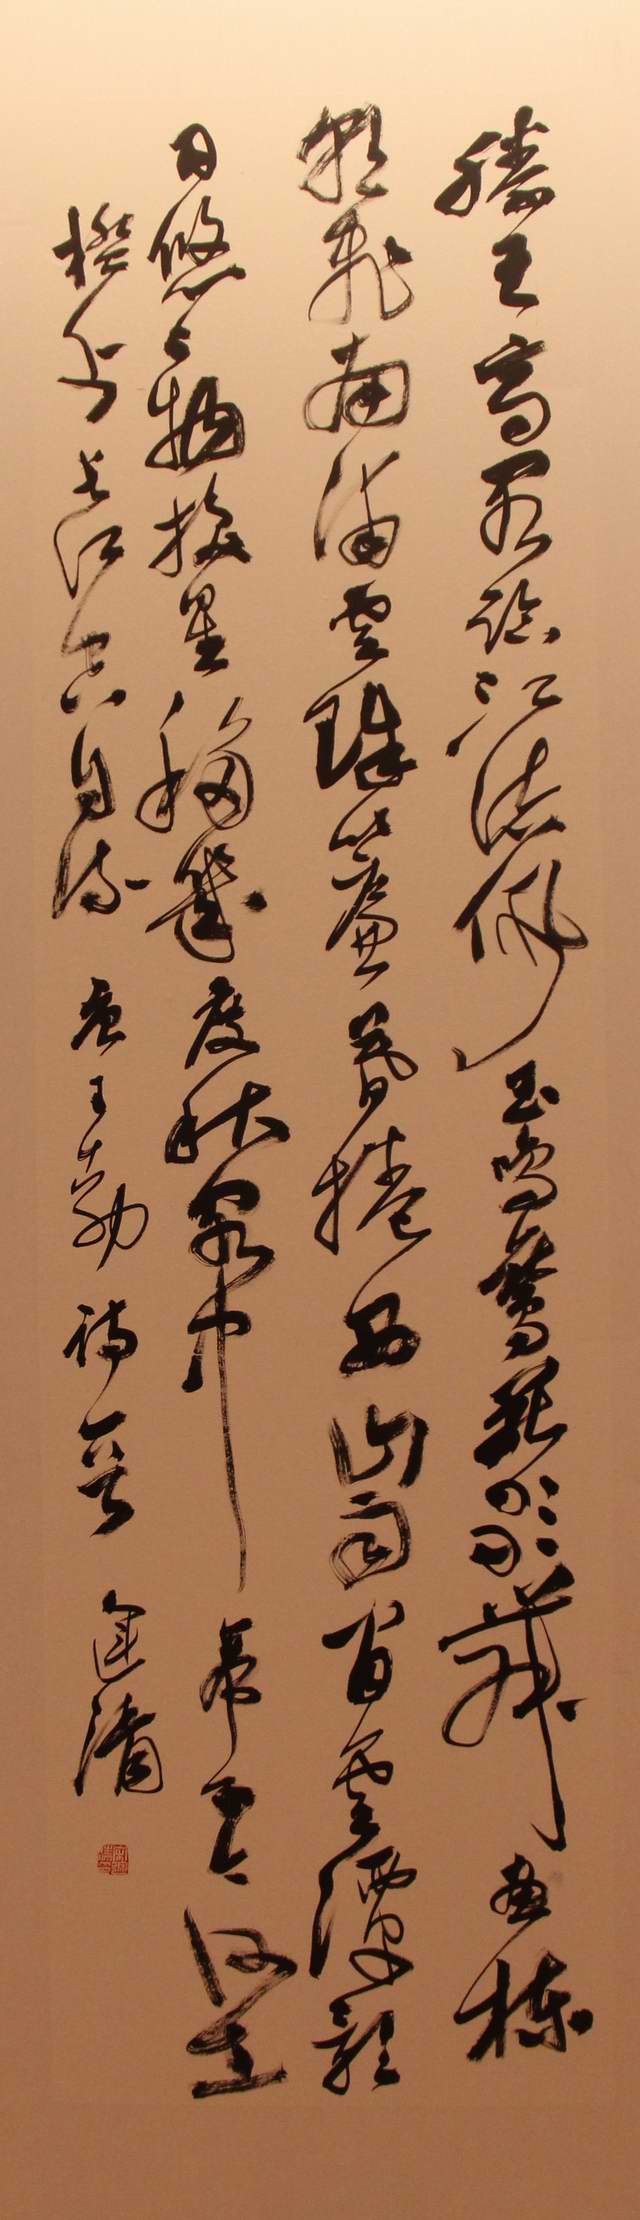 滕王高閣臨江渚佩玉鳴鸞罷歌舞畫棟
朝飛南浦雲珠簾暮捲西山雨閒雲潭影
日悠〻物換星移幾度秋閣中帝子今何在
檻外長江空自流 唐王勃詩一首